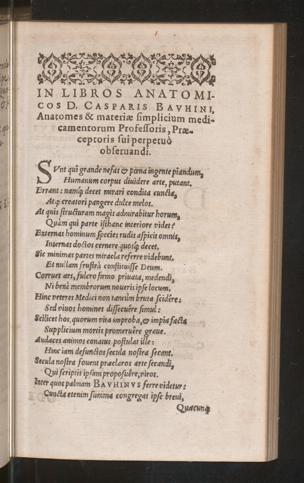 IN LIBROS ANATOMI-
COS D. CASPARIS BAVHINI,
Anatomes & materiæ simplicium medi-
camentorum Professoris, Præ-
ceptoris sui perpetuò
obseruandi.
SVnt qui grande nefas & pœna ingente piandum,
Humanum corpus diuidere arte, putant.
Errant: namq; decet mirari condita cuncta,
Atq; creatori pangere dulce melos.
At quis structuram magis admirabitur horum,
Quàm qui parte isthæc interiore videt?
Externas hominum species rudis aspicit omnis,
Internas doctos cernere quosq; decet.
Sic minimas partes miracla referre videbunt,
Et nullam frustrà constituisse Deum.
Corruet ars, fulcro firmo priuata, medendi,
Ni benè membrorum noueris ipse locum.
Hinc veteres Medici non tantùm bruta scidêre:
Sed viuos homines dissecuêre simul:
Scilicet hos, quorum vita improba, & impia facta
Supplicium mortis promeruêre graue.
Audaces animos conatus postulat ille:
Hinc iam defunctos secula nostra secant.
Secula nostra fouent præclaros arte secandi,
Qui scriptis ipsam proposuêre, viros.
Inter quos palmam BAVHINVS ferre videtur:
Cuncta etenim summa congregat ipse breui,
Quæcunq;